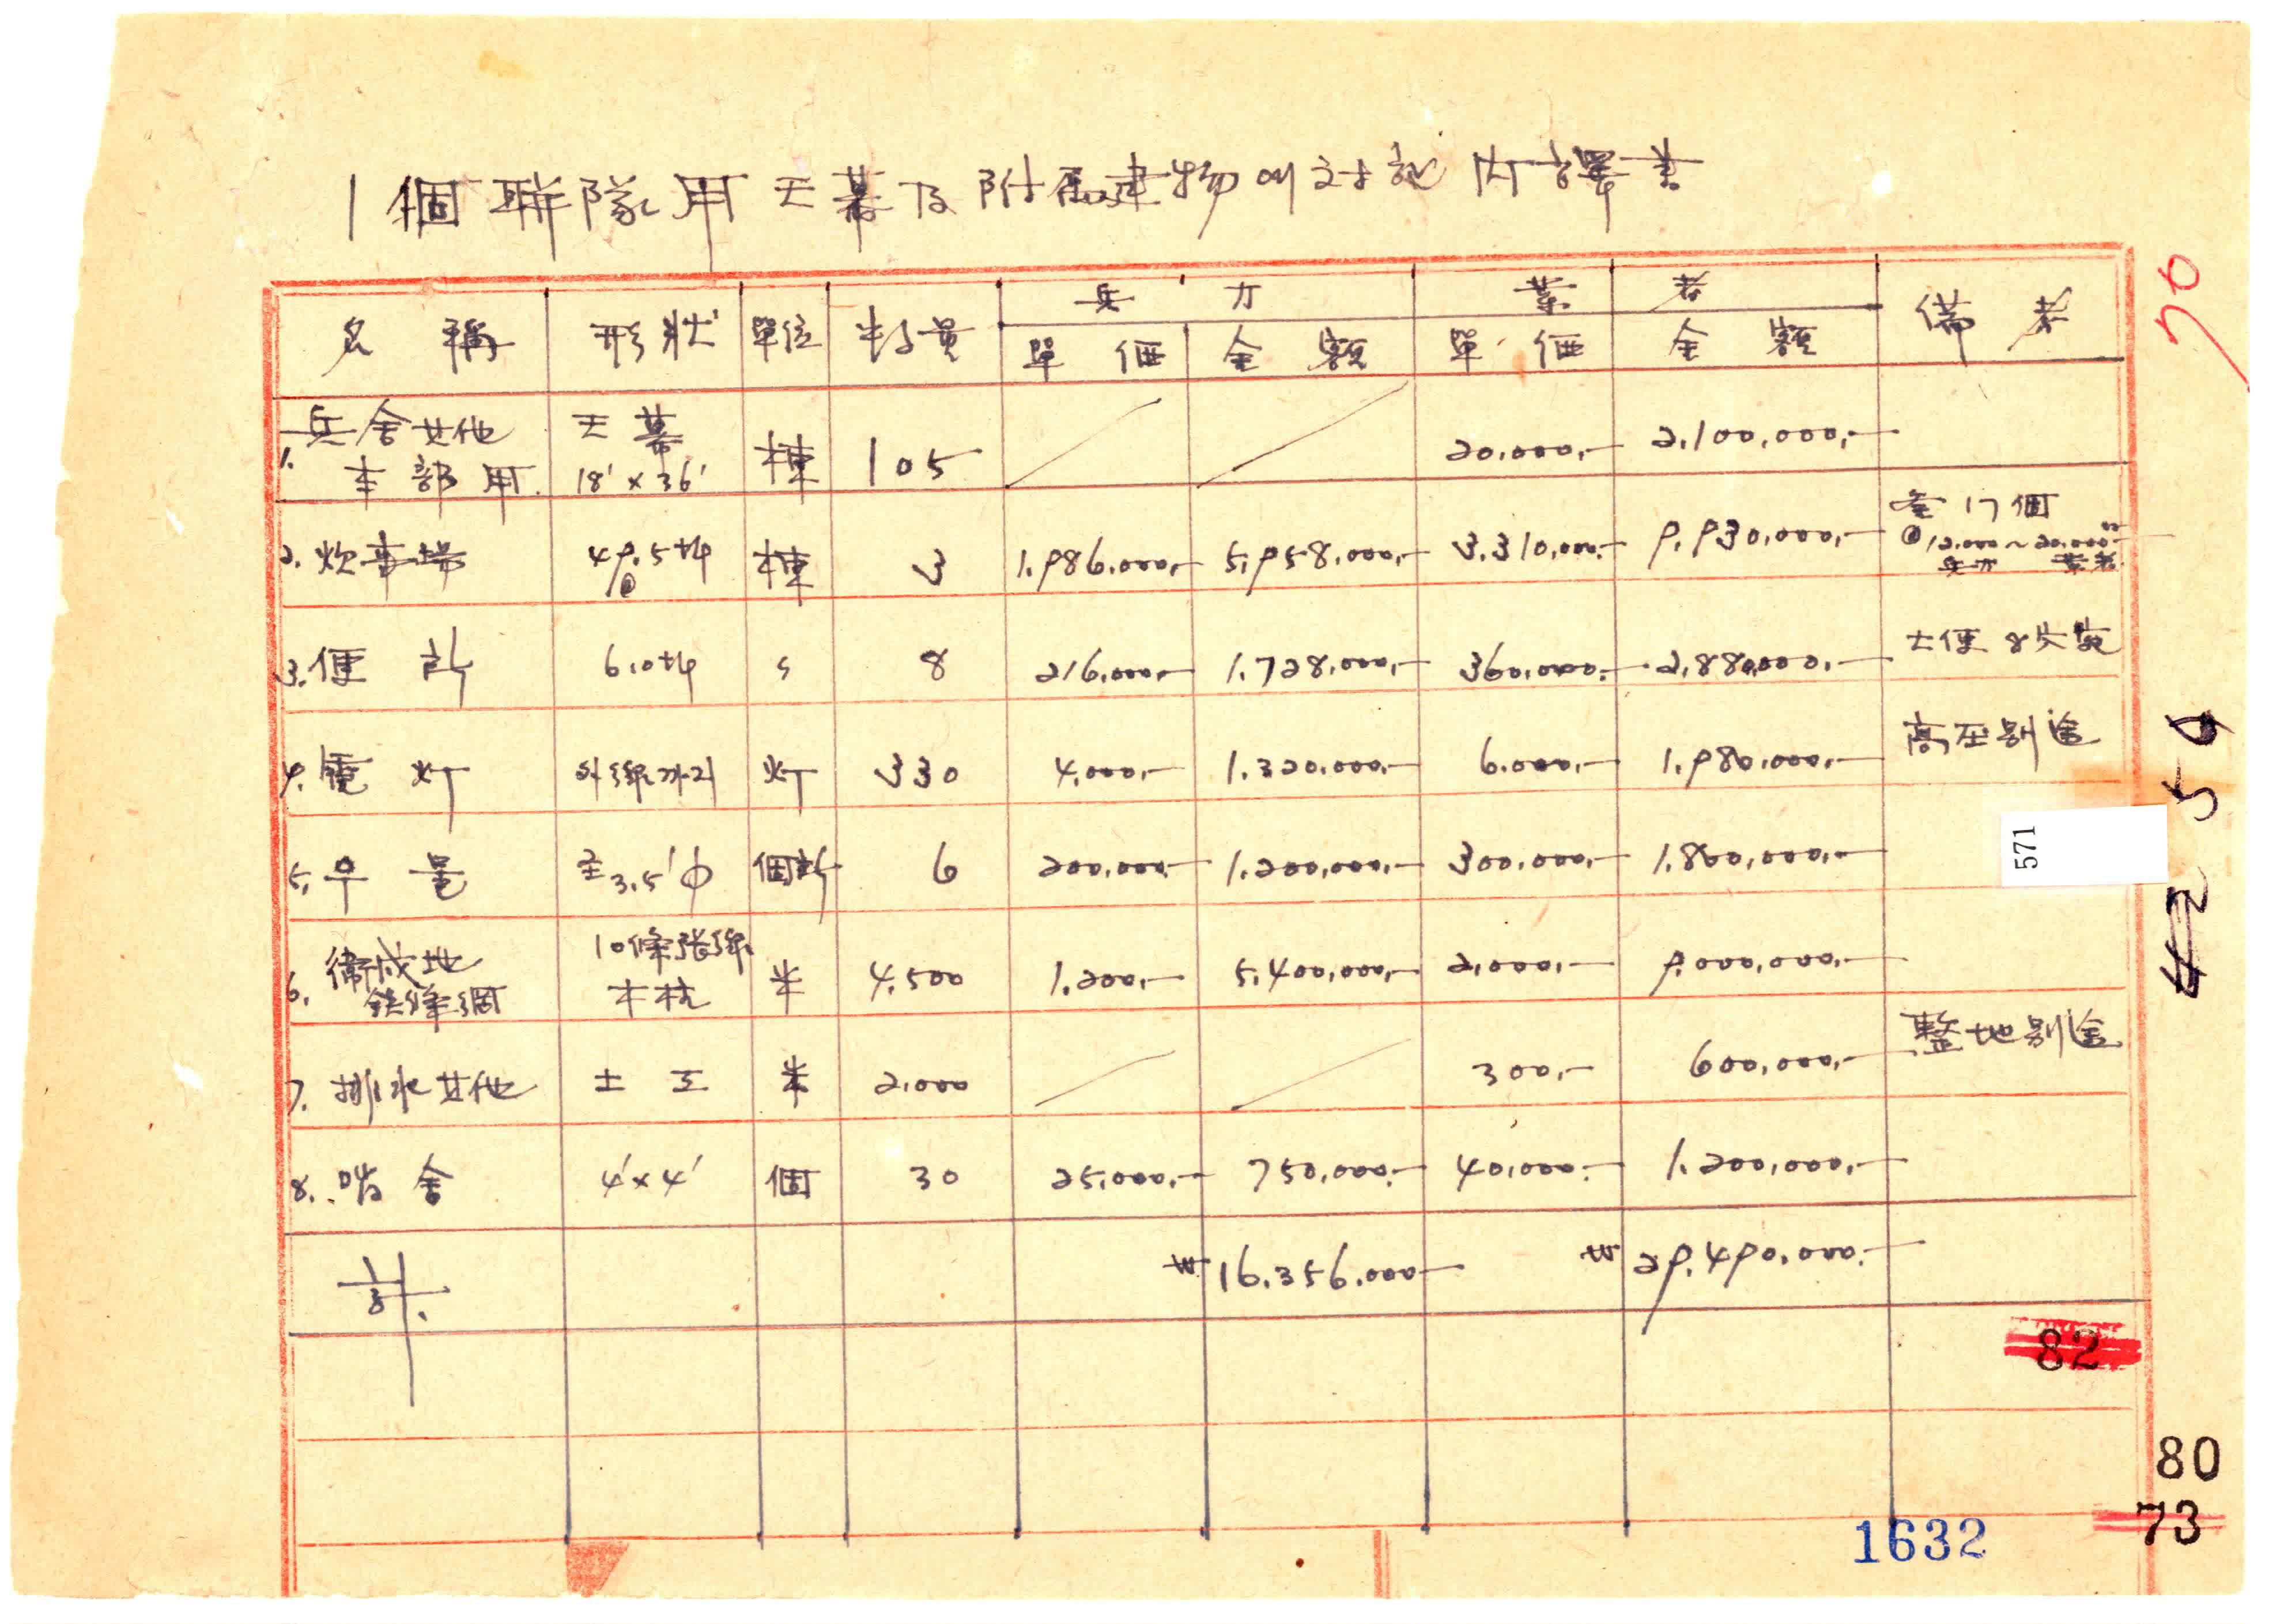 1個聯隊用天幕及附屬建物에 対한 内譯書
名稱 形狀 單位 数量 兵力 業者 備考
單価 金額 單価 金額
1. 兵舍其他 本部用 天幕 18'×36' 棟 105 20.000,- 2.100,000,-
2. 炊事場 49.5坪 @ 棟 3 1.986.000,- 5.958.000,- 3.310,000.- 9.930,000,- 釜 17個 @12.000~20.000 兵力 業者
3. 便所 6.0坪 〃 8 216.000,- 1.728,000,- 360.000.- 2.880,000,- 大便 8
4. 電灯 外線까지 灯 330 4.000,- 1.320.000.- 6.000,- 1.980.000.- 高圧別途
5. 우물 至3.5'φ 個所 6 200,000.- 1.200,000,- 300,000,- 1.800,000.-
6. 衛戍地 鉄條網 10條張線 木杭 米 4.500 1.200,- 5.400,000,- 2.000,- 9.000,000.-
7. 排水其他 土工 米 2.000 300,- 600,000,- 整地別途
8. 哨舍 4'×4' 個 30 25.000,- 750,000.- 40.000.- 1.200,000,-
計. ₩16.356.000- ₩29.490.000.-
70
54
42
571
82
80
73
1632